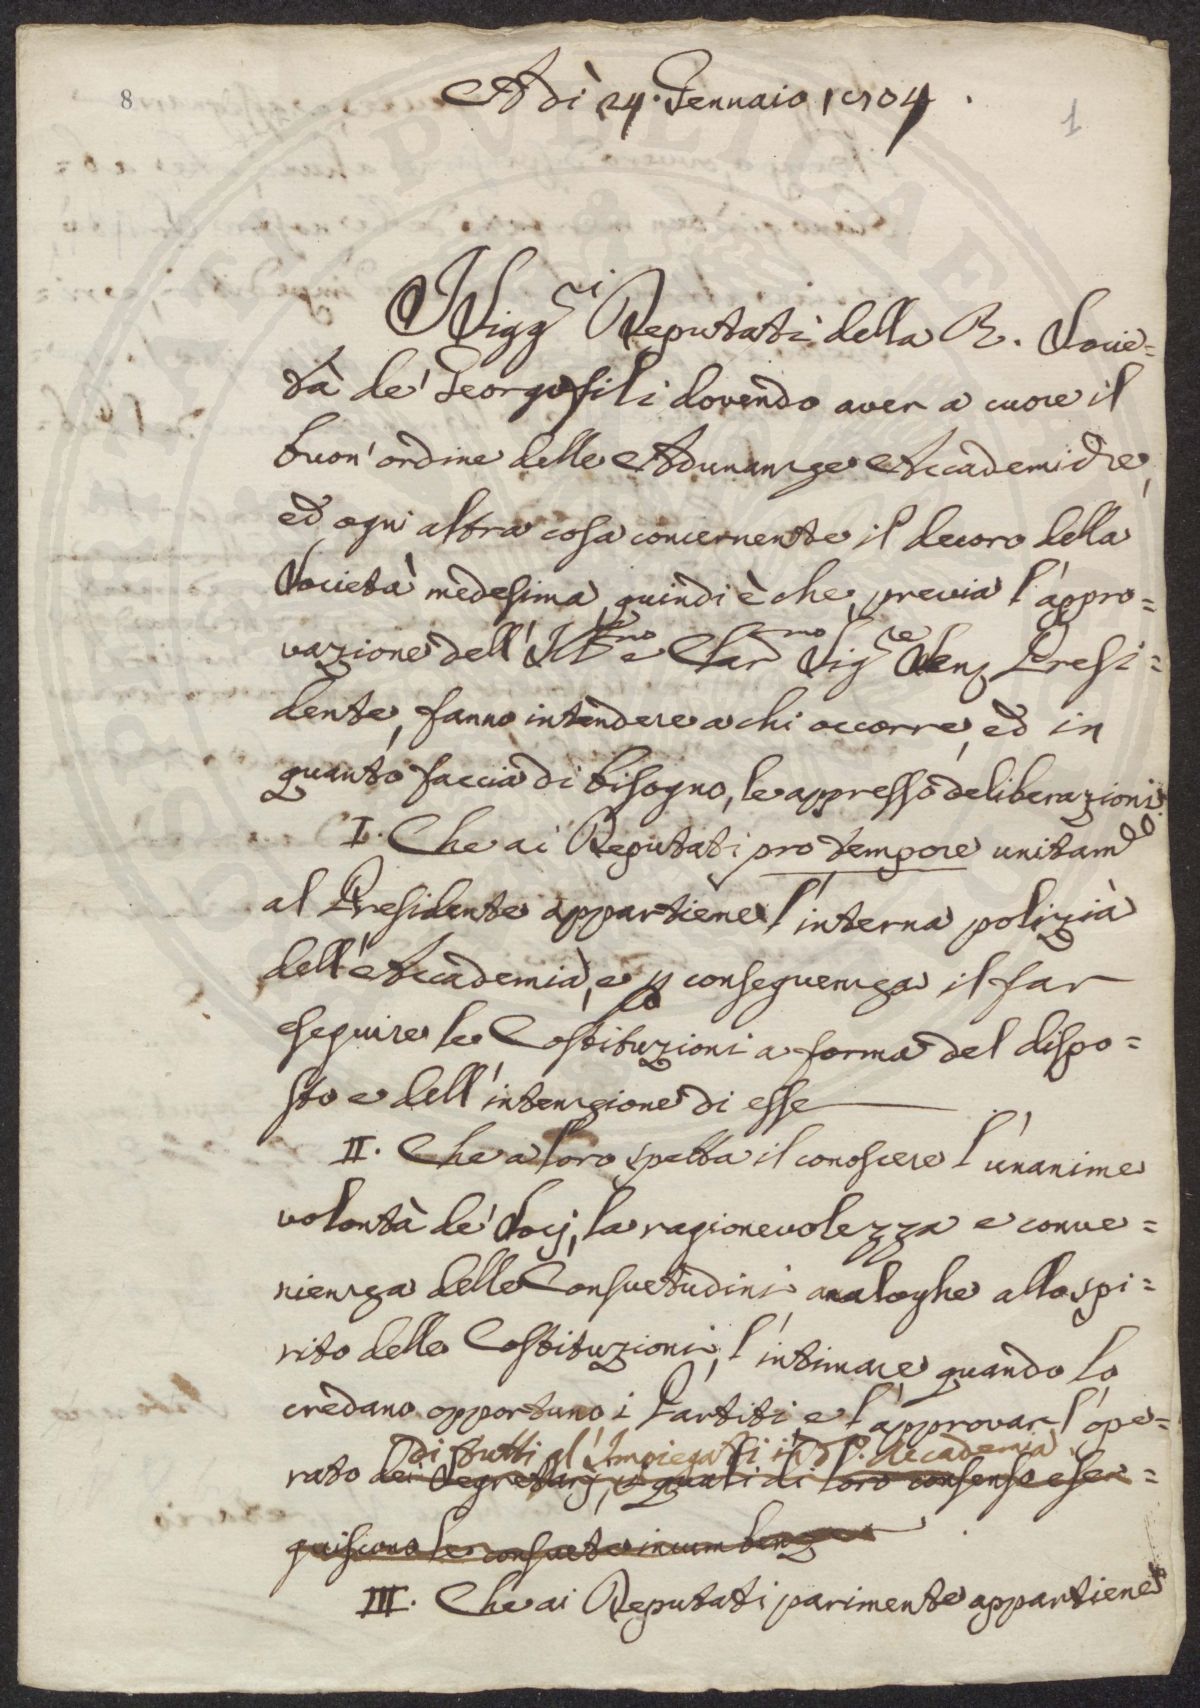 8
1
Adì 24. Gennaio 1704.
I Sigg.ri Deputati della R. Socie=
tà de' Georgofili dovendo aver a cuore il
buon'ordine delle Adunanze Accademiche,
ed ogni altra cosa concernente il decoro della
Società medesima, quindi è che, previa l'appro=
vazione dell'Ill.mo e Clar.mo Sig.re Sen. Presi=
dente, fanno intendere a chi occorre, ed in
quanto faccia di bisogno, le appresso deliberazioni.
I. Che ai Deputati pro tempore unitam.te
al Presidente appartiene l'interna polizia
dell'Accademia, e p conseguenza il far
eseguire le Costituzioni a forma del dispo=
sto e dell'intenzione di esse
II. Che a loro spetta il conoscere l'unanime
volontà de' Socj, la ragionevolezza e conve=
nienza delle Consuetudini analoghe allo spi=
rito delle Costituzioni, l'intimare quando lo
credano opportuno i Partiti e l'approvar l'ope=
di tutti gl'Impiegati in d.a Accademia.
rato dei Segretarj, i quali di loro consenso ese=
guiscono le consuete incumbenze
III. Che ai Deputati parimente appartiene